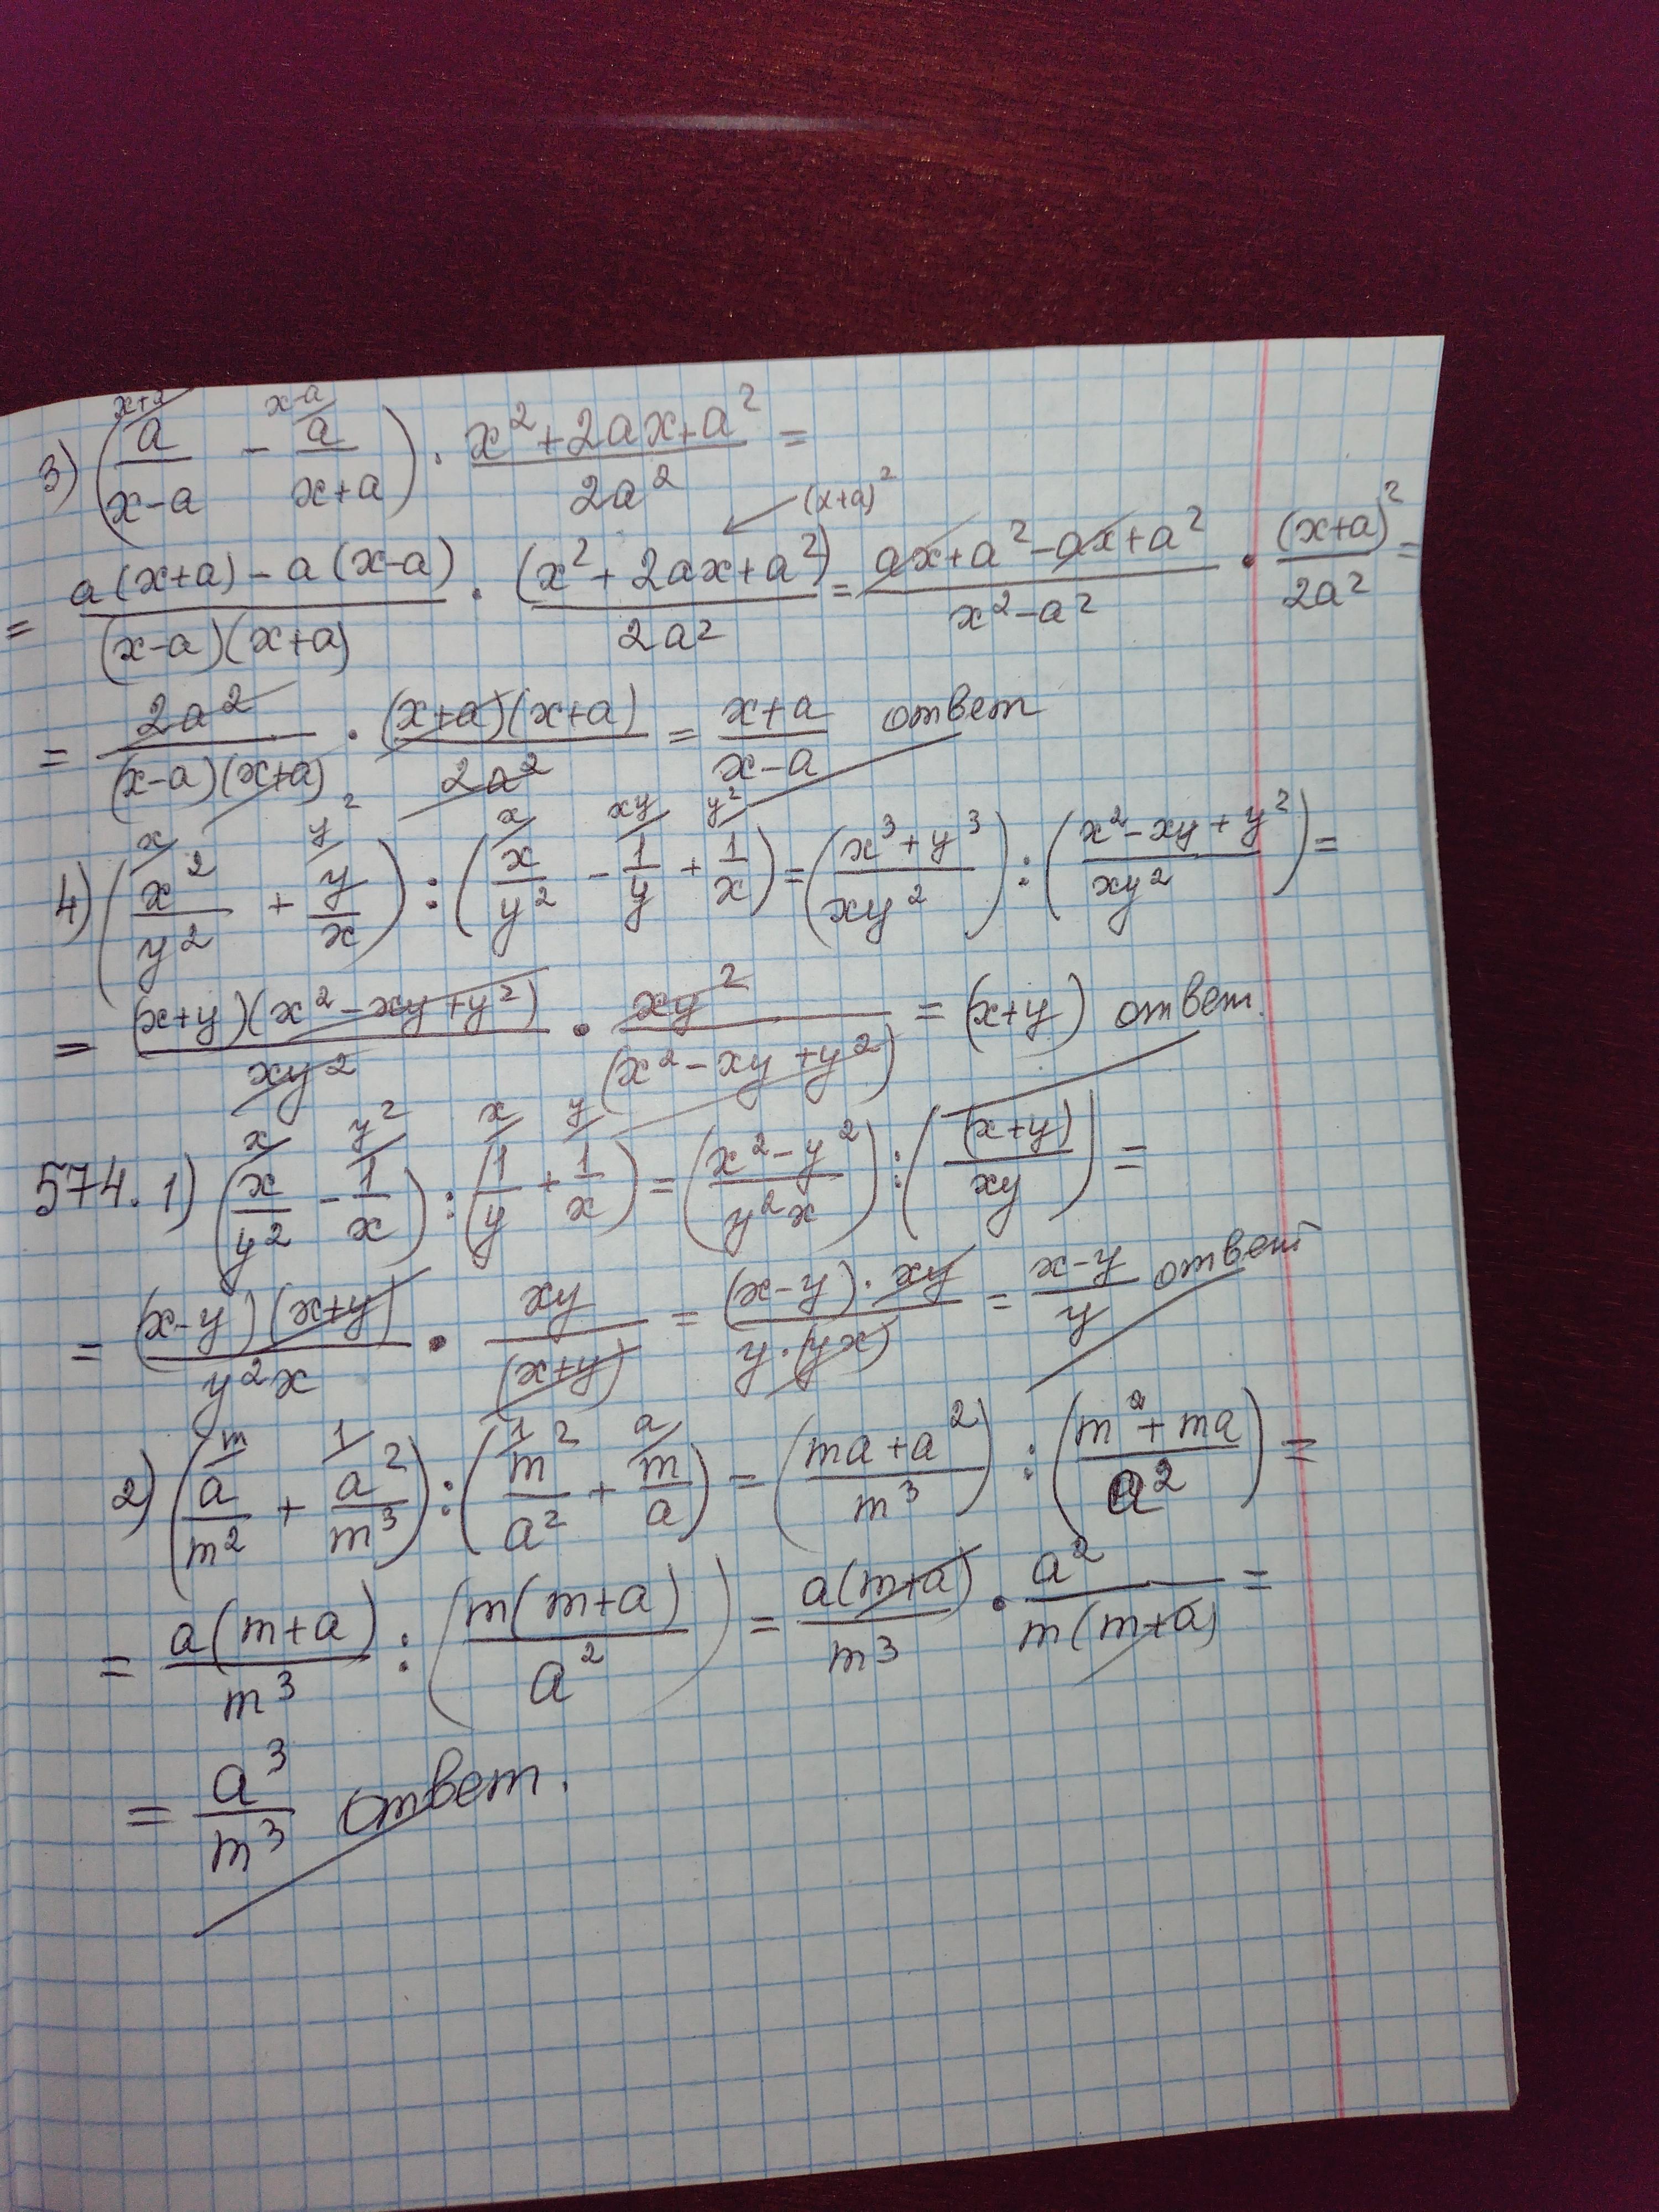 3) (a/(x-a) [x+a] - a/(x+a) [x-a]) · (x²+2ax+a²)/(2a²) =
(x+a)²
= (a(x+a)-a(x-a))/((x-a)(x+a)) · (x²+2ax+a²)/(2a²) = (ax+a²-ax+a²)/(x²-a²) · (x+a)²/(2a²) =
= 2a²/((x-a)(x+a)) · ((x+a)(x+a))/(2a²) = (x+a)/(x-a) ответ
4) (x²/y² [x] + y/x [y²]) : (x/y² [x] - 1/y [xy] + 1/x [y²]) = ((x³+y³)/(xy²)) : ((x²-xy+y²)/(xy²)) =
= ((x+y)(x²-xy+y²))/(xy²) · xy²/(x²-xy+y²) = (x+y) ответ.
574. 1) (x/y² [x] - 1/x [y²]) : (1/y [x] + 1/x [y]) = ((x²-y²)/(y²x)) : ((x+y)/(xy)) =
= ((x-y)(x+y))/(y²x) · xy/(x+y) = ((x-y)·xy)/(y·(yx)) = (x-y)/y ответ
2) (a/m² [m] + a²/m³ [1]) : (m²/a² [1] + m/a [a]) = ((ma+a²)/m³) : ((m²+ma)/a²) =
= a(m+a)/m³ : (m(m+a)/a²) = a(m+a)/m³ · a²/(m(m+a)) =
= a³/m³ ответ.